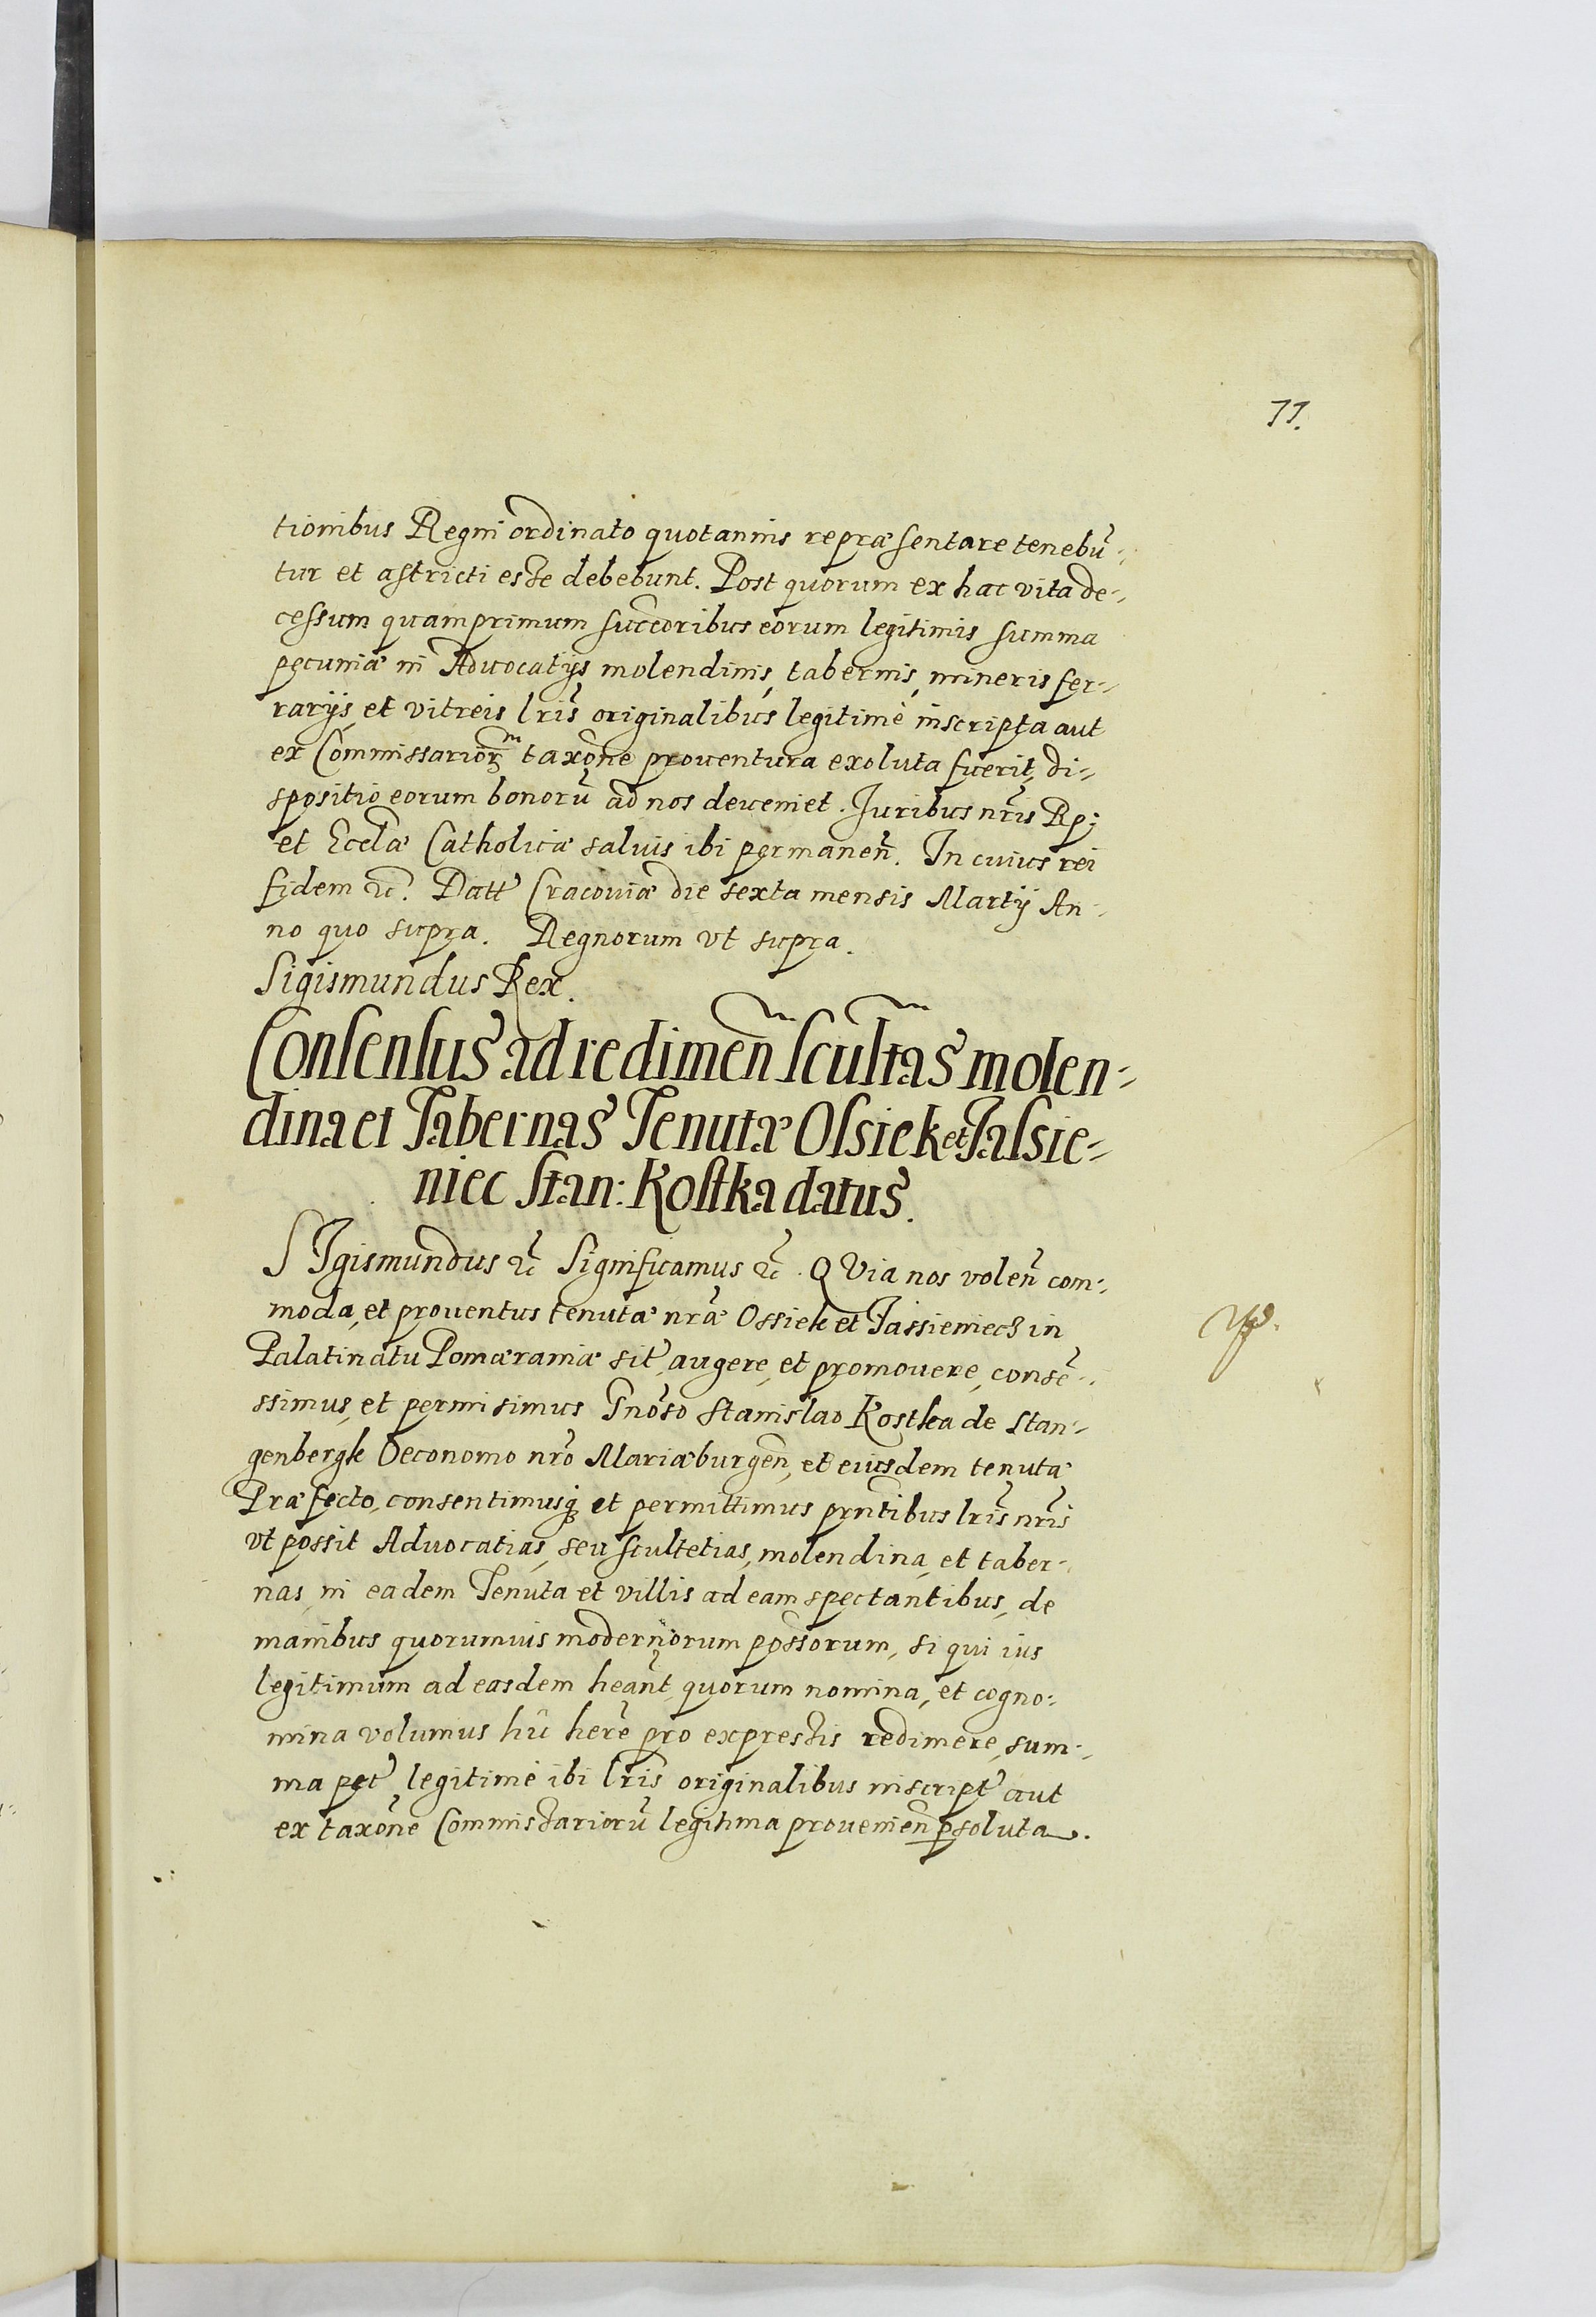 77.
tionibus Regni ordinato quotannis repræsentare tenebũ-
tur et astricti esse debebunt. Post quorum ex hac vita de-
cessum quamprimum succoribus eorum legitimis summa
pecuniæ in Advocatijs, molendinis, tabernis, mineris fer-
rarijs, et vitreis lris originalibus legitimè inscripta aut
ex Commissarior taxone proventura exoluta fuerit, di-
spositio eorum bonorũ ad nos deveniet. Juribus nris Rp:
et Ecclæ Catholicæ salvis ibi permanen. In cuius rei
fidem &c. Datt Cracoviæ die sexta mensis Martij An-
no quo supra. Regnorum vt supra.
Sigismundus Rex.
Consensus ad redimen scultas molen-
dina et Tabernas Tenutæ Ossiek et Jassie-
niec Stan: Kostka datus.
SIgismundus &c Significamus &c. QVia nos volen com-
moda, et proventus tenutæ nræ Ossiek et Jassieniecz in
Palatinatu Pomæraniæ sit, augere, et promovere, consẽ-
ssimus, et permisimus Gnoso Stanislao Kostka de Stan-
genbergk Oeconomo nro Mariæburgen, et eiusdem tenutæ
Præfecto, consentimusq et permittimus prntibus lris nris
vt possit Advocatias, seu scultetias, molendina, et taber-
nas, in eadem Tenuta et villis ad eam spectantibus, de
manibus quorumvis modernorum possorum, si qui ius
legitimum ad easdem heant, quorum nomina, et cogno-
mina volumus hic here pro expressis redimere, sum-
ma pet, legitimè ibi lris originalibus inscript aut
ex taxone Commissariorũ legitima provenien psoluta.